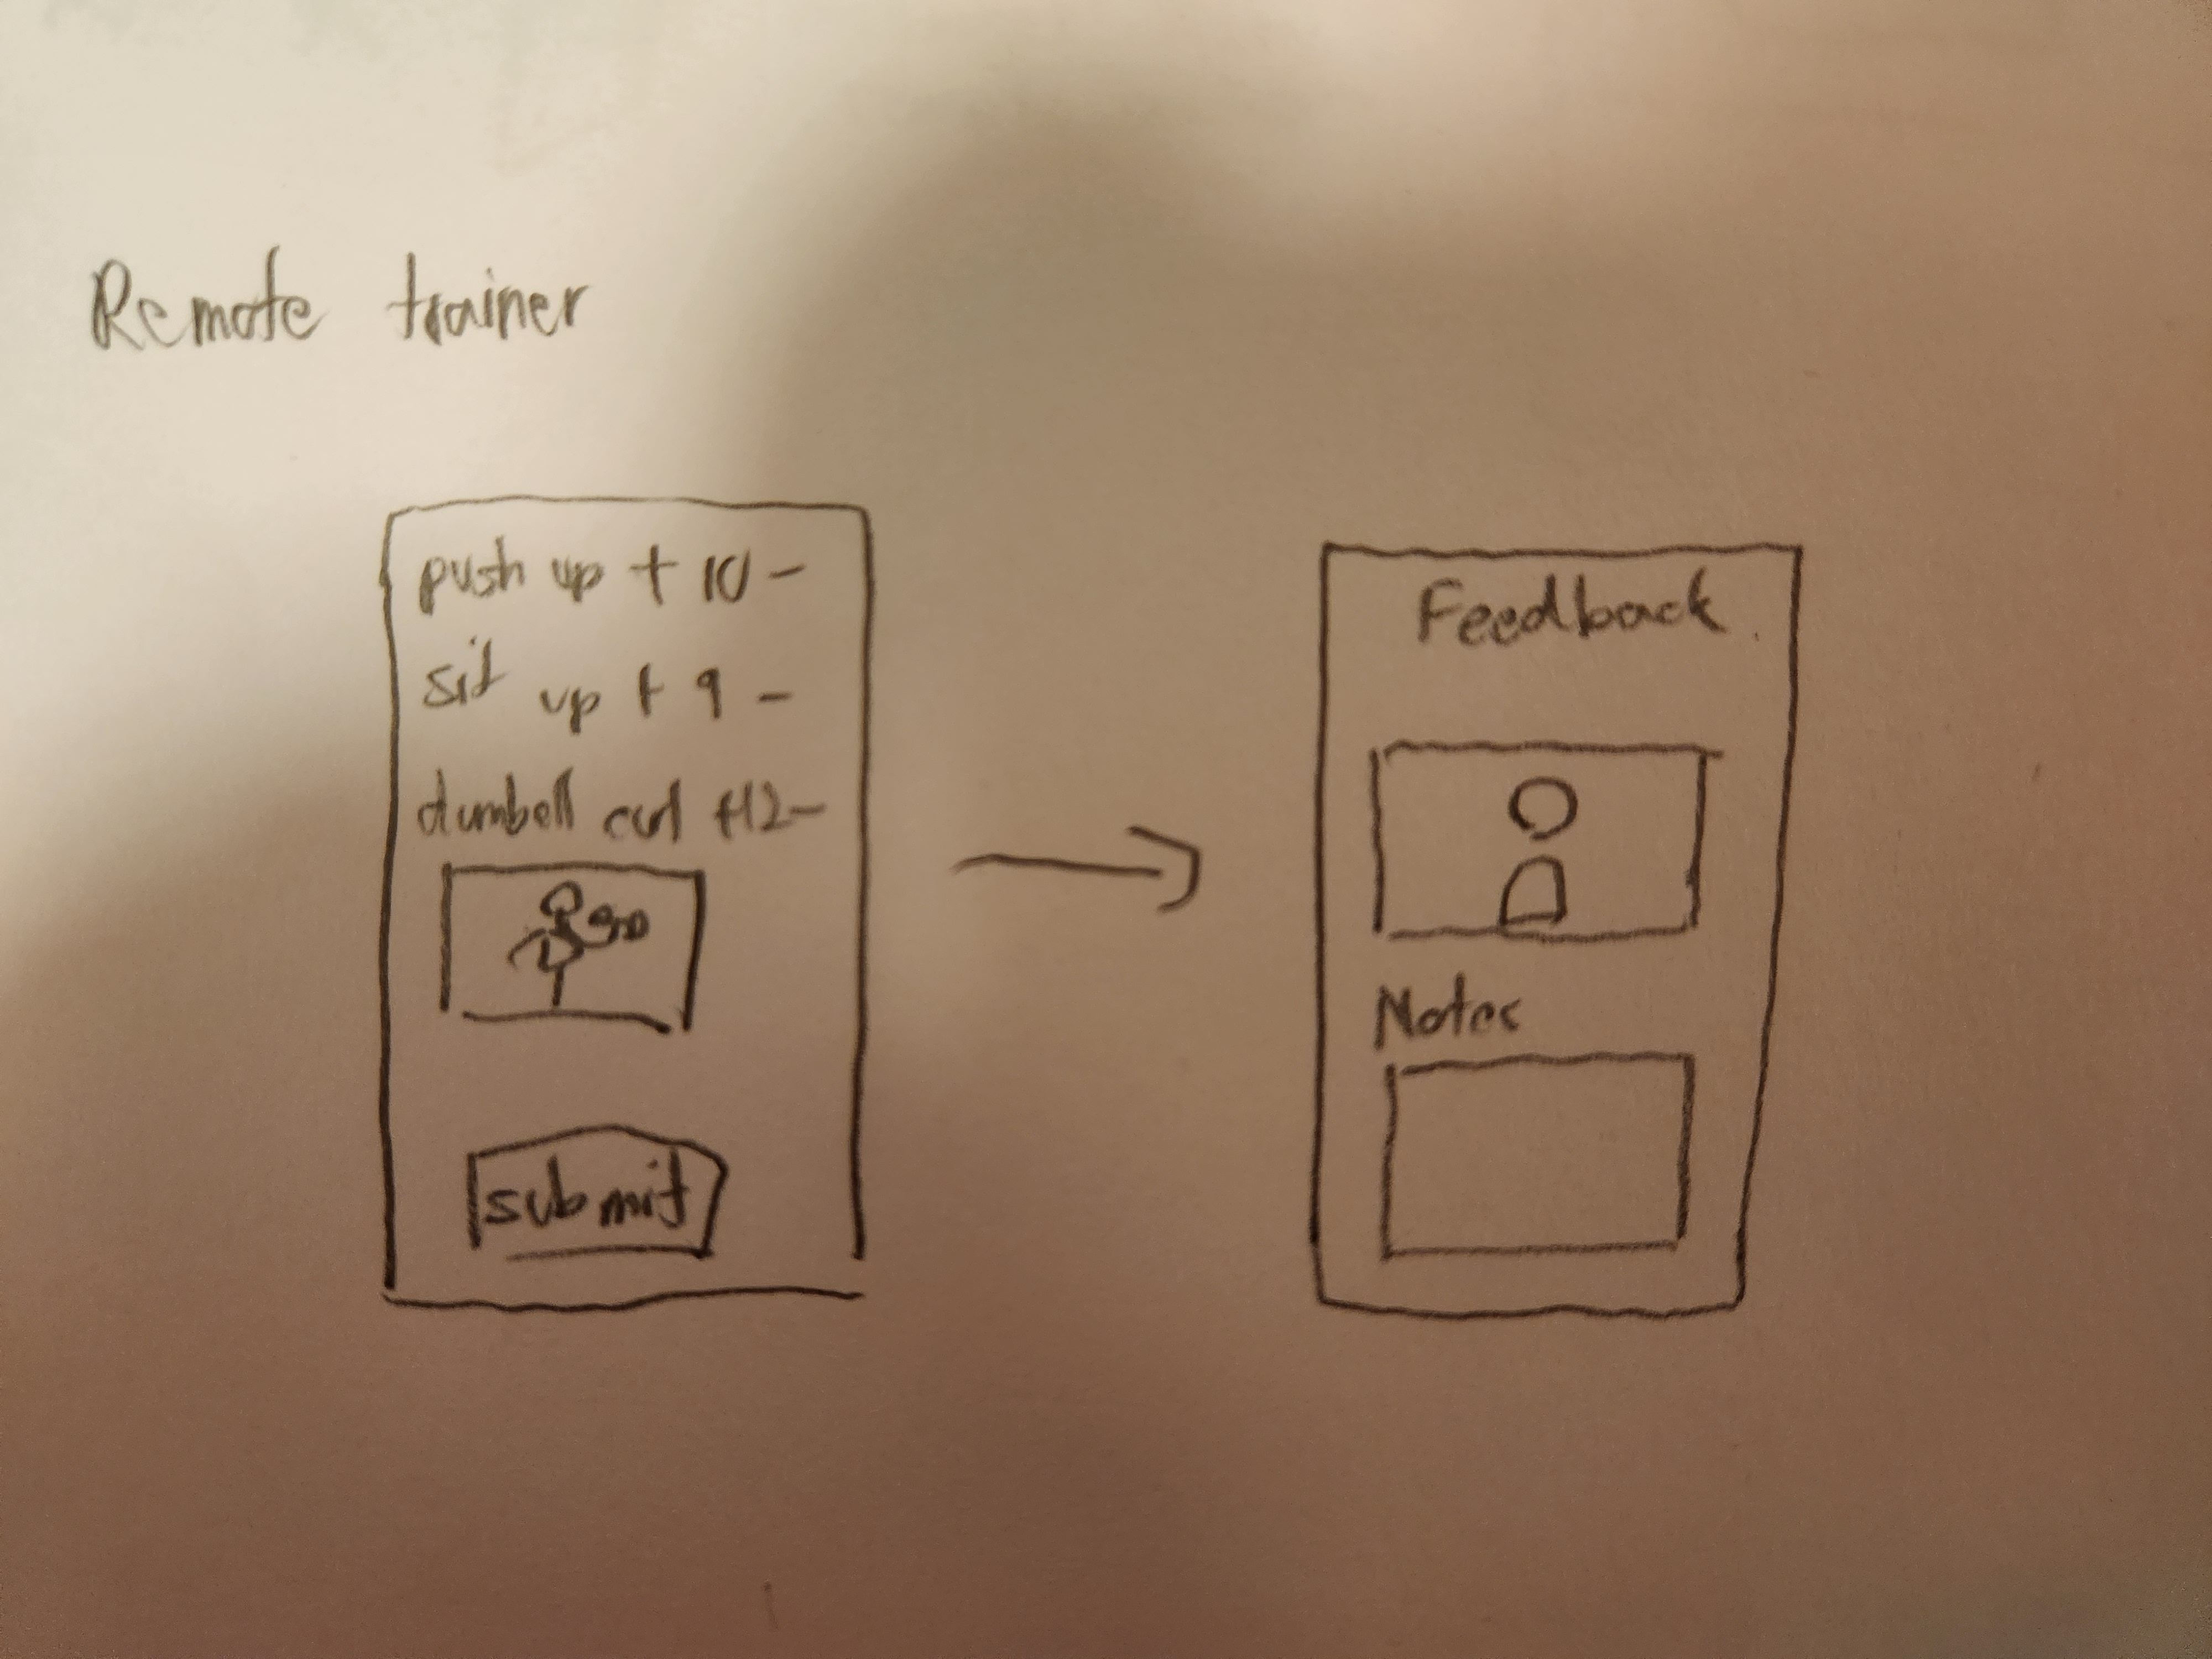 Remote trainer
push up + 10 -
sit up + 9 -
dumbell curl +12-
submit
Feedback
Notes